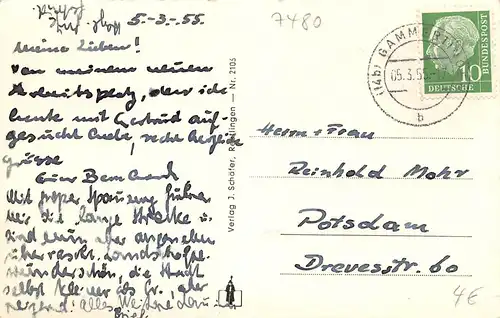 5.-3.-55.
Meine Lieben!
Von meinem neuen
Arbeitsplatz, den ich
heute mit Gertrud auf-
gesucht habe, recht herzliche
Grüsse
Euer Bernhard
Mit großer Spannung fuhren
wir die lange Strecke u.
sind nun aber angenehm
überrascht. Landschaftl.
wunderschön, die Stadt
selbst kleiner als
reizend! alles Weitere dann im
Brief
Verlag J. Schäfer, Reutlingen — Nr. 2105
7480
(14b) GAMMERTINGEN
05.3.55
b
10
DEUTSCHE
BUNDESPOST
Herrn + Frau
Reinhold Mohr
Potsdam
Drevesstr. 60
4E